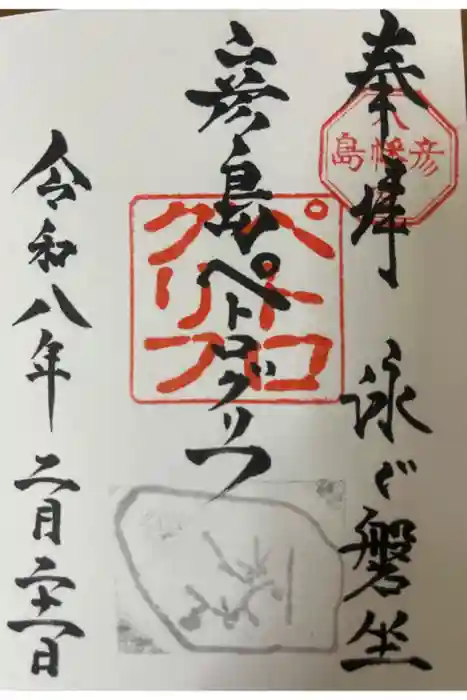 奉拝 泳ぐ磐坐
八幡
彦島
彦島ペトログリフ
ペトロ
グリフ
令和八年 二月二十一日